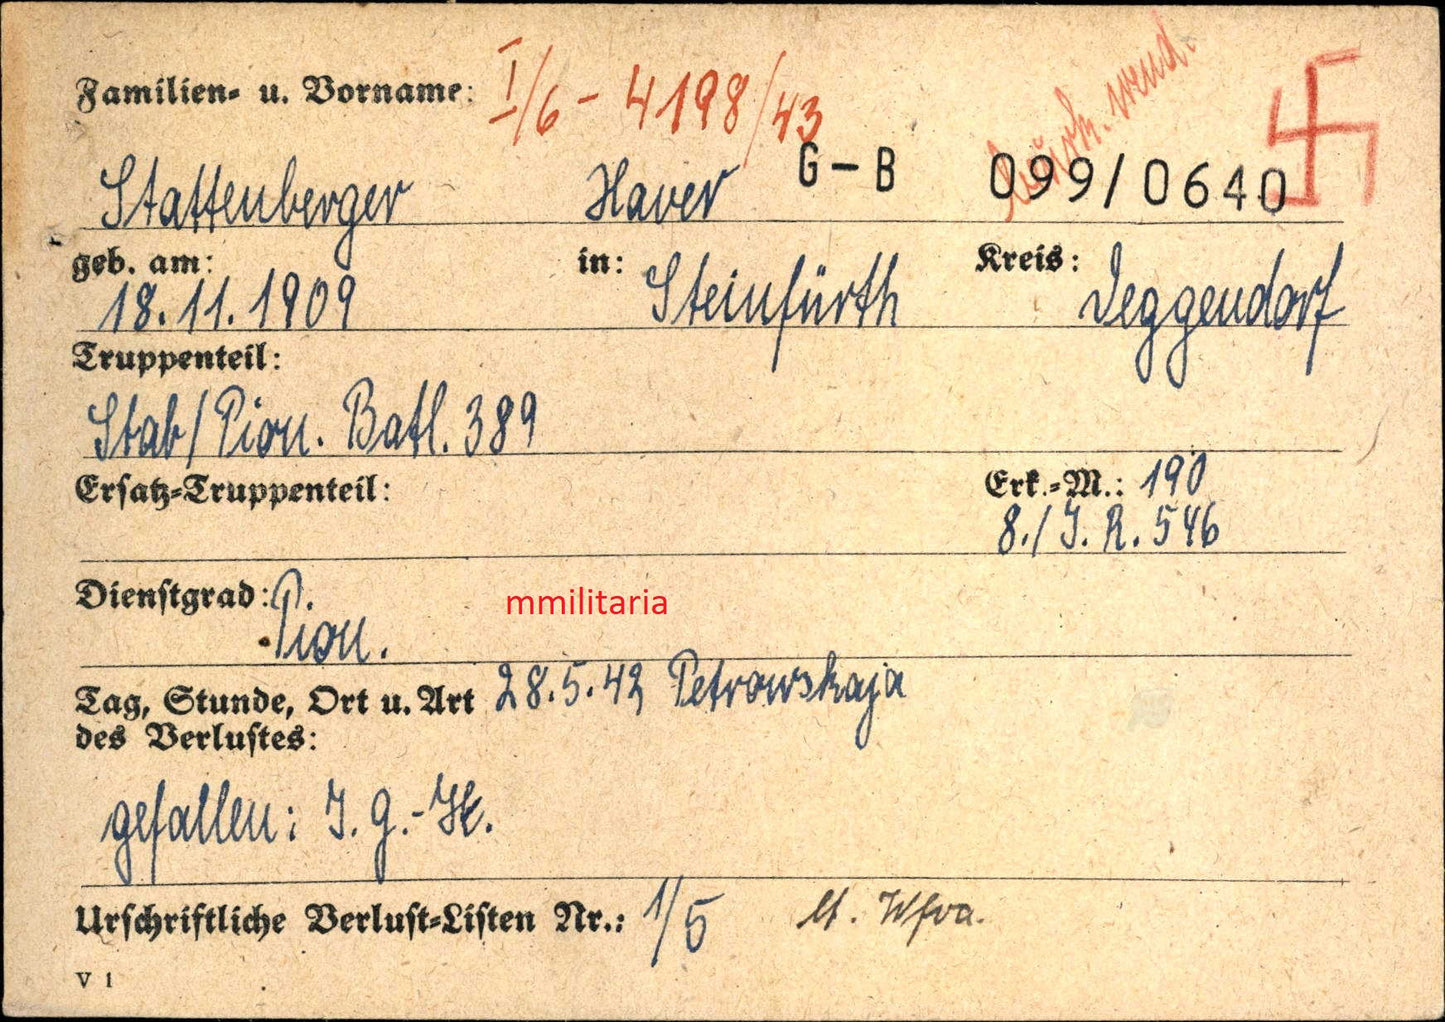 Familien- u. Vorname: I/6 - 4198/43
Stattenberger Xaver G-B 099/0640
geb. am: 18.11.1909 in: Steinfürth Kreis: Deggendorf
Truppenteil:
Stab/Pion. Batl. 389
Ersatz-Truppenteil: Erk.-M.: 190
8./J.R. 546
Dienstgrad: Pion.
mmilitaria
Tag, Stunde, Ort u. Art 28.5.42 Petrowskaja
des Verlustes:
gefallen: J.G.-
Urschriftliche Verlust-Listen Nr.: 1/5 lt.
V 1